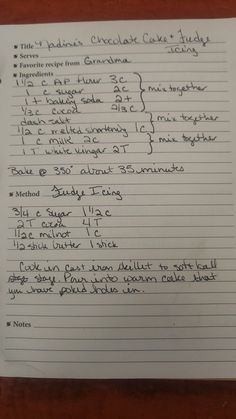 Title "Nadine's Chocolate Cake + Fudge
Icing
Serves
Favorite recipe from Grandma
Ingredients
1 1/2 c AP flour 3c
1 c sugar 2c } mix together
1 t baking soda 2t
1/3 c cocoa 2/3 c
dash salt
1/2 c melted shortening 1c } mix together
1 c milk 2c
1 T white vinegar 2T } mix together
Bake @ 350° about 35 minutes
Method Fudge Icing
3/4 c sugar 1 1/2 c
2T cocoa 4T
1/2 c milnot 1c
1/2 stick butter 1 stick
Cook in cast iron skillet to soft ball
stage. Pour into warm cake that
you have poked holes in.
Notes